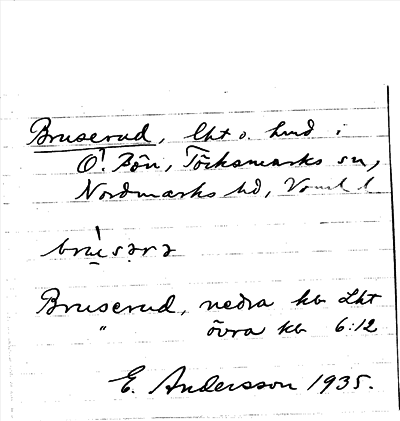 Bruserud, lht o. hmd i
Ö. Bön, Töcksmarks sn,
Nordmarks hd, Vrml l
brùsərə
Bruserud, nedra kb Lht
" övra kb 6:12
E. Andersson 1935.